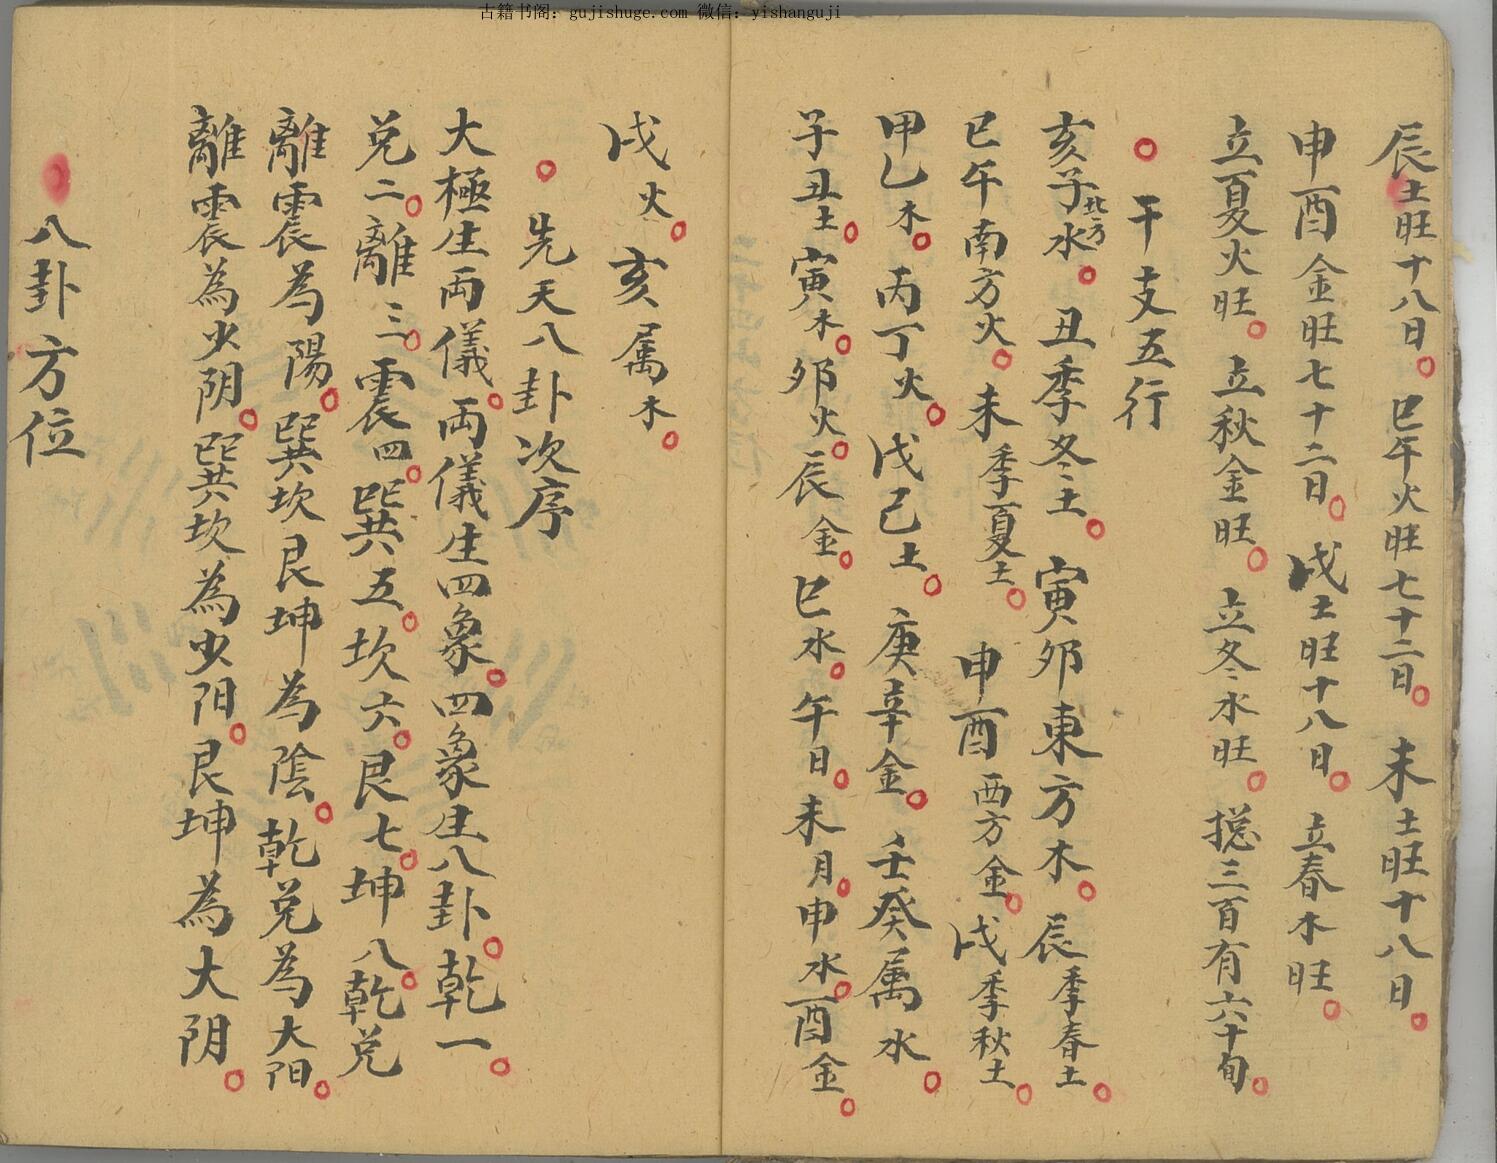 古籍书阁：gujishuge.com 微信：yishanguji
辰土旺十八日。巳午火旺七十二日。未土旺十八日。
申酉金旺七十二日。戌土旺十八日。立春木旺。
立夏火旺。立秋金旺。立冬水旺。摠三百有六十旬。
○干支五行
亥子北方水。丑季冬土。寅夘東方木。辰季春土。
巳午南方火。未季夏土。申酉西方金。戌季秋土。
甲乙木。丙丁火。戊己土。庚辛金。壬癸属水。
子丑土。寅木。夘火。辰金。巳水。午日。未月。申水。酉金。
戌火。亥属木。
○先天八卦次序
大極生両儀。両儀生四象。四象生八卦。乾一。
兑二。離三。震四。巽五。坎六。艮七。坤八。乾兑
離震為陽。巽坎艮坤為陰。乾兑為大阳。
離震為少阴。巽坎為少阳。艮坤為大阴。
八卦方位